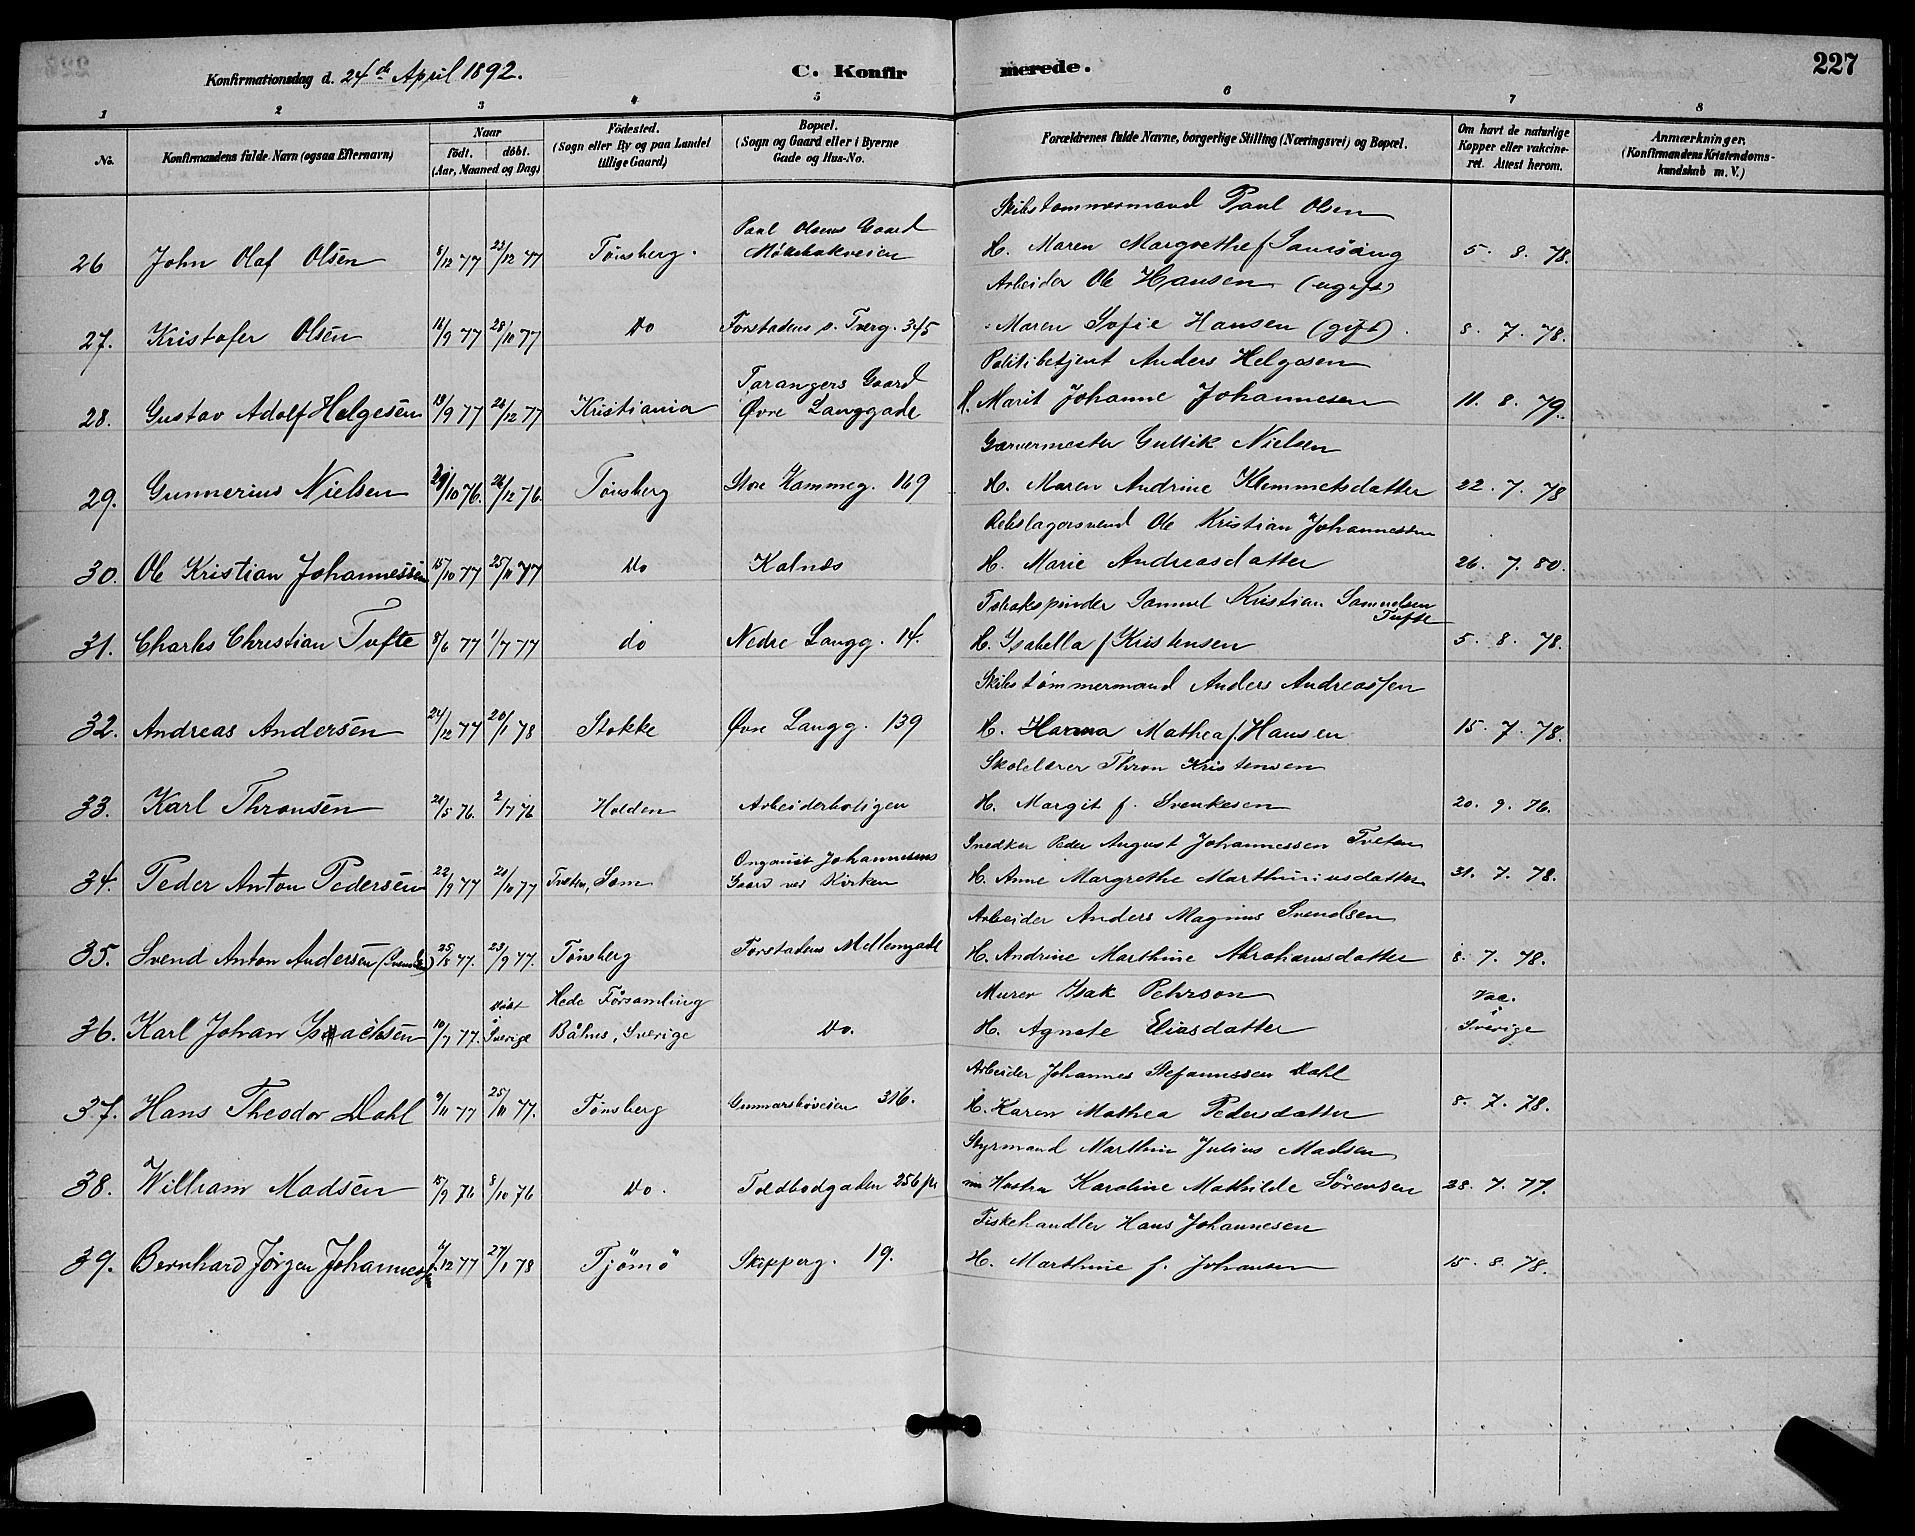 Konfirmationsdag d. 24de April 1892.
C. Konfirmerede.
227
1 2 3 4 5 6 7 8
No.
Konfirmandens fulde Navn (ogsaa Efternavn)
Naar
födt. döbt.
(Aar, Maaned og Dag)
Födested.
(Sogn eller By og paa Landet tillige Gaard)
Bopæl.
(Sogn og Gaard eller i Byerne Gade og Hus-No.
Forældrenes fulde Navne, borgerlige Stilling (Næringsvei) og Bopæl.
Om havt de naturlige Kopper eller vakcineret. Attest herom.
Anmærkninger.
(Konfirmandens Kristendomskundskab m. V.)
Skibstømmermand Paul Olsen
26 John Olaf Olsen 8/12 77 23/12 77 Tønsberg. Paul Olsens Gaard H. Maren Margrethe f 5. 8. 78.
Arbeider Ole Hansen (ugift)
27. Kristofer Olsen 16/9 77 28/10 77 Do Forstadens s. Tverg. 345 Maren Sofie Hansen (gift). 8. 7. 78.
Politibetjent Anders Helgesen
28. Gustav Adolf Helgesen 19/9 77 26/12 77 Kristiania Tarangers Gaard Øvre Langgade H. Marit Johanne Johannesen 11. 8. 79.
Garvermester Gullik Nielsen
29. Gunnerius Nielsen 29/10 76. 26/12 76. Tønsberg Store Kammeg. 169 H. Maren Andrine Klemmetsdatter 22. 7. 78
Rebslagersvend Ole Kristian Johannessen
30. Ole Kristian Johannessen 15/10 77 25/11 77 Do Kalnes H. Marie Andreasdatter 26. 7. 80.
Tobakspinder Samuel Kristian Samuelsen Tufte
31. Charles Christian Tufte 8/6 77 1/7 77 do Nedre Langg. 14. H. Isabella f Kristensen 5. 8. 78.
Skibstømmermand Anders Andreassen
32. Andreas Andersen 24/12 77 20/1 78 Stokke Øvre Langg. 139 H. Mathea f. Hansen 15. 7. 78.
Skolelærer Thron Kristensen
33. Karl Thronsen 21/5 76. 2/7 76 Holden Arbeiderboligen H. Margit f. Svenkesen 20. 9. 76.
Snedker Peder August Johannessen Tveten
34. Peder Anton Pedersen 22/9 77 20/10 77 Tveten, Sem Johannesens Gaard ved Kirken H. Anne Margrethe Marthiniusdatter 31. 7. 78.
Arbeider Anders Magnus Svendsen
35. Svend Anton Andersen (Svendsen) 25/8 77. 23/9 77. Tønsberg Forstadens Mellemgade H. Andrine Marthine Abrahamsdatter 8. 7. 78.
Murer Isak Pehrson
36. Karl Johan Isachsen 10/7 77. Døbt i Sverige Hede Församling Båhus, Sverige Do. H. Agnete Eliasdatter Vac. i Sverige
Arbeider Johannes Stefanussen Dahl
37. Hans Theodor Dahl 9/11 77 25/11 77. Tønsberg Gunnarsbøveien 316. H. Karen Mathea Pedersdatter 8. 7. 78.
Styrmand Marthin Julius Madsen
38. William Madsen 15/9 76 8/10 76 Do. Toldbodgaden 256 H. Hustru Karoline Mathilde Sörensen 28. 7. 77.
Fiskehandler Hans Johannesen
39. Bernhard Jörgen Johannessen 6/12 77 27/1 78 Tjömö Skipperg. 19. H. Marthine f. Johansen 15. 8. 78.